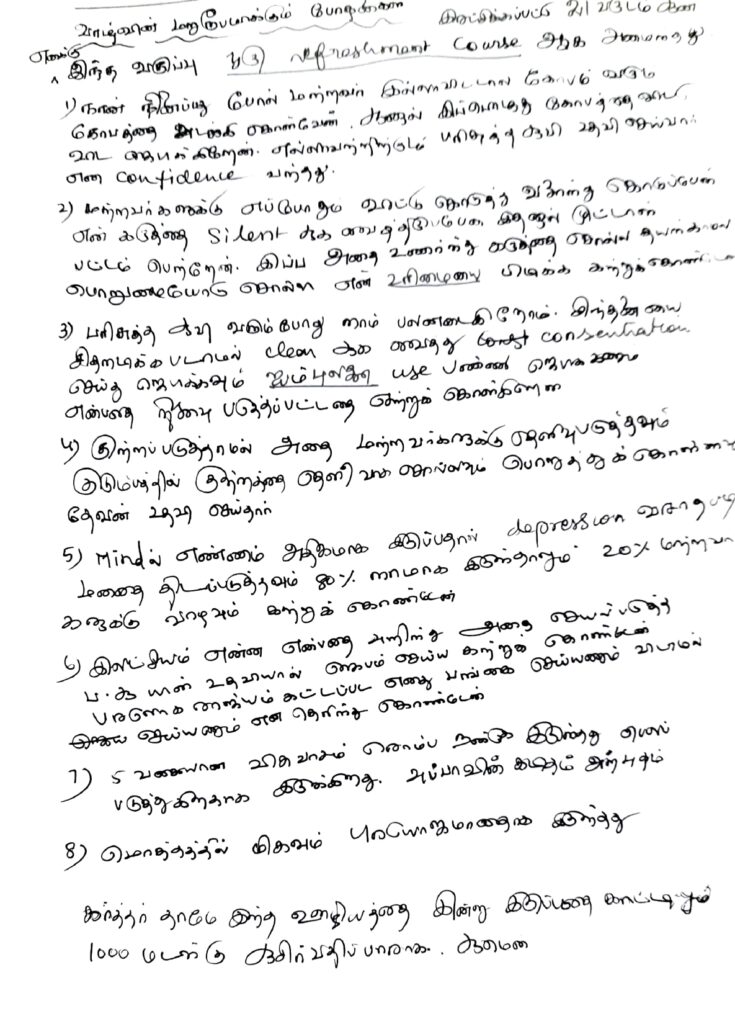 வாழ்வின் மறுரூபமாக்கும் போதனைகள் இரட்சிக்கப்பட்டு 21 வருடம் ஆன
எனக்கு
இந்த வகுப்பு ஒரு refreshment course ஆக அமைந்தது
1) நான் நினைப்பது போல் மற்றவர் இல்லாவிட்டால் கோபம் வரும்
கோபத்தை அடக்கி கொள்வேன். ஆனால் இப்பொழுது கோபத்தை
விட பரிசுத்த ஆவி உதவி செய்வார்
என confidence வந்தது.
2) மற்றவர்களுக்கு எப்போதும் விட்டு கொடுத்து கொடுப்பேன்
என் கருத்தை silent ஆக வைத்திருப்பேன். இதனால் முட்டாள்
பட்டம் பெற்றேன். இப்ப அதை உணர்ந்து கருத்தை சொல்ல தயங்காமல்
பொறுமையோடு சொல்ல என் உரிமையை பிடிக்க கற்றுக் கொண்டேன்
3) பரிசுத்த ஆவி வரும்போது நாம் பலனடைகிறோம். சிந்தனையை
சிதறடிக்க படாமல் clean ஆக வைத்து consentration
செய்து ஜெபிக்கவும் ஐம்புலனை use பண்ண
என்பதை நினைவு படுத்தப்பட்டதை கற்றுக் கொண்டேன்
4) குற்றப்படுத்தாமல் அதை மற்றவர்களுக்கு தெளிவுபடுத்தவும்
குடும்பத்தில் குற்றத்தை தெளிவாக சொல்லவும் பொறுத்துக் கொள்ளவும்
தேவன் உதவி செய்தார்
5) Mindல் எண்ணம் அதிகமாக இருப்பதால் depression வராதபடி
மனதை திடப்படுத்தவும் 80% நாமாக இருந்தாலும் 20% மற்றவர்
களுக்கு வாழவும் கற்றுக் கொண்டேன்
6) இலட்சியம் என்ன என்பதை அறிந்து அதை செயல்படுத்த
ப.ஆ யின் உதவியால் ஜெபம் செய்ய கற்றுக் கொண்டேன்
பரலோக ராஜ்யம் கட்டப்பட எனது பங்கை செய்யணும் விடாமல்
செய்யணும் என தெரிந்து கொண்டேன்
7) 5 வகையான விசுவாசம் ரொம்ப நன்றாக இருந்தது பெலப்
படுத்துகிறதாக இருக்கிறது. அப்பாவின் கிருபையும் அற்புதம்
8) மொத்தத்தில் மிகவும் பிரயோஜனமானதாக இருந்தது
கர்த்தர் தாமே இந்த ஊழியத்தை இன்று இருப்பதை காட்டிலும்
1000 மடங்கு ஆசிர்வதிப்பாராக. ஆமென்